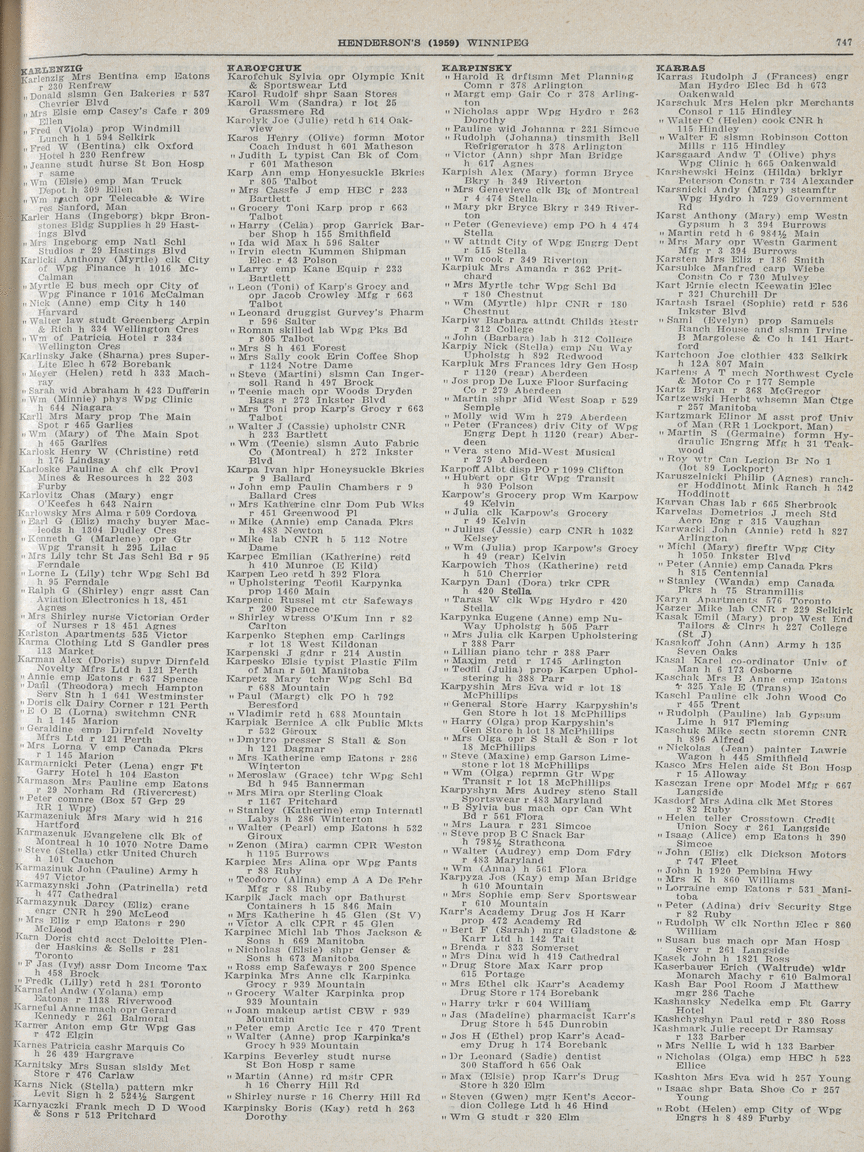 HENDERSON'S (1959) WINNIPEG
747
KARLENZIG
Karlenzig Mrs Bentina emp Eatons
r 230 Renfrew
" Donald slsmn Gen Bakeries r 537
Chevrier Blvd
" Mrs Elsie emp Casey's Cafe r 309
Ellen
" Fred (Viola) prop Windmill
Lunch h 1 594 Selkirk
" Fred W (Bentina) clk Oxford
Hotel h 230 Renfrew
" Jeanne studt nurse St Bon Hosp
r same
" Wm (Elsie) emp Man Truck
Depot h 309 Ellen
" Wm mach opr Telecable & Wire
res Sanford, Man
Karler Hans (Ingeborg) bkpr Bron-
stones Bldg Supplies h 29 Hast-
ings Blvd
" Mrs Ingeborg emp Natl Schl
Studios r 29 Hastings Blvd
Karlicki Anthony (Myrtle) clk City
of Wpg Finance h 1016 Mc-
Calman
" Myrtle E bus mech opr City of
Wpg Finance r 1016 McCalman
" Nick (Anne) emp City h 140
Harvard
" Walter law studt Greenberg Arpin
& Rich h 334 Wellington Cres
" Wm of Patricia Hotel r 334
Wellington Cres
Karlinsky Jake (Sharna) pres Super-
Lite Elec h 672 Borebank
" Meyer (Helen) retd h 333 Mach-
ray
" Sarah wid Abraham h 423 Dufferin
" Wm (Minnie) phys Wpg Clinic
h 644 Niagara
Karll Mrs Mary prop The Main
Spot r 465 Garlies
" Wm (Mary) of The Main Spot
h 465 Garlies
Karlosk Henry W (Christine) retd
h 176 Lindsay
Karloske Pauline A chf clk Provl
Mines & Resources h 22 303
Furby
Karlovitz Chas (Mary) engr
O'Keefes h 643 Nairn
Karlowsky Mrs Alma r 509 Cordova
" Earl G (Eliz) machy buyer Mac-
leods h 1304 Dudley Cres
" Kenneth G (Marlene) opr Gtr
Wpg Transit h 295 Lilac
" Mrs Lily tchr St Jas Schl Bd r 95
Ferndale
" Lorne L (Lily) tchr Wpg Schl Bd
h 95 Ferndale
" Ralph G (Shirley) engr asst Can
Aviation Electronics h 18, 451
Agnes
" Mrs Shirley nurse Victorian Order
of Nurses r 18 451 Agnes
Karlston Apartments 535 Victor
Karma Clothing Ltd S Gandler pres
113 Market
Karman Alex (Doris) supvr Dirnfeld
Novelty Mfrs Ltd h 121 Perth
" Annie emp Eatons r 637 Spence
" Danl (Theodora) mech Hampton
Serv Stn h 1 641 Westminster
" Doris clk Dairy Corner r 121 Perth
" E O E (Lorna) switchmn CNR
h 1 145 Marion
" Geraldine emp Dirnfeld Novelty
Mfrs Ltd r 121 Perth
" Mrs Lorna V emp Canada Pkrs
r 1 145 Marion
Karmarnicki Peter (Lena) engr Ft
Garry Hotel h 104 Easton
Karmason Mrs Pauline emp Eatons
r 29 Norham Rd (Rivercrest)
" Peter comnre (Box 57 Grp 29
RR 1 Wpg)
Karmazeniuk Mrs Mary wid h 216
Hartford
Karmazenuk Evangelene clk Bk of
Montreal h 10 1070 Notre Dame
" Steve (Stella) ctkr United Church
h 101 Cauchon
Karmazinuk John (Pauline) Army h
497 Victor
Karmazynski John (Patrinella) retd
h 477 Cathedral
Karmazynuk Darcy (Eliz) crane
engr CNR h 290 McLeod
" Mrs Eliz r emp Eatons r 290
McLeod
Karn Doris chtd acct Deloitte Plen-
der Haskins & Sells r 281
Toronto
" F Jas (Ivy) assr Dom Income Tax
h 458 Brock
" Fredk (Lilly) retd h 281 Toronto
Karnafel Andw (Yolana) emp
Eatons r 1138 Riverwood
Karneful Anne mach opr Gerard
Kennedy r 261 Balmoral
Karner Anton emp Gtr Wpg Gas
r 472 Elgin
Karnes Patricia cashr Marquis Co
h 26 439 Hargrave
Karnitsky Mrs Susan slsldy Met
Store r 476 Carlaw
Karns Nick (Stella) pattern mkr
Levit Sign h 2 524½ Sargent
Karnyaczki Frank mech D D Wood
& Sons r 513 Pritchard
KAROFCHUK
Karofchuk Sylvia opr Olympic Knit
& Sportswear Ltd
Karol Rudolf shpr Saan Stores
Karoll Wm (Sandra) r lot 25
Grassmere Rd
Karolyk Joe (Julie) retd h 614 Oak-
view
Karos Henry (Olive) formn Motor
Coach Indust h 601 Matheson
" Judith L typist Can Bk of Com
r 601 Matheson
Karp Ann emp Honyesuckle Bkries
r 805 Talbot
" Mrs Cassfe J emp HBC r 233
Bartlett
" Grocery Toni Karp prop r 663
Talbot
" Harry (Celia) prop Garrick Bar-
ber Shop h 155 Smithfield
" Ida wid Max h 596 Salter
" Irvin electn Kummen Shipman
Elec r 43 Polson
" Larry emp Kane Equip r 233
Bartlett
" Leon (Toni) of Karp's Grocy and
opr Jacob Crowley Mfg r 663
Talbot
" Leonard druggist Gurvey's Pharm
r 596 Salter
" Roman skilled lab Wpg Pks Bd
r 805 Talbot
" Mrs S h 461 Forest
" Mrs Sally cook Erin Coffee Shop
r 1124 Notre Dame
" Steve (Martini) slsmn Can Inger-
soll Rand h 497 Brock
" Teenie mach opr Woods Dryden
Bags r 272 Inkster Blvd
" Mrs Toni prop Karp's Grocy r 663
Talbot
" Walter J (Cassie) upholstr CNR
h 233 Bartlett
" Wm (Teenie) slsmn Auto Fabric
Co (Montreal) h 272 Inkster
Blvd
Karpa Ivan hlpr Honeysuckle Bkries
r 9 Ballard
" John emp Paulin Chambers r 9
Ballard Cres
" Mrs Katherine clnr Dom Pub Wks
r 451 Greenwood Pl
" Mike (Annie) emp Canada Pkrs
h 488 Newton
" Mike lab CNR h 5 112 Notre
Dame
Karpec Emilian (Katherine) retd
h 410 Munroe (E Kild)
Karpen Leo retd h 392 Flora
" Upholstering Teofil Karpynka
prop 1460 Main
Karpenic Russel mt ctr Safeways
r 200 Spence
" Shirley wtress O'Kum Inn r 82
Carlton
Karpenko Stephen emp Carlings
r lot 18 West Kildonan
Karpenski J gdnr r 214 Austin
Karpesko Elsie typist Plastic Film
of Man r 501 Manitoba
Karpetz Mary tchr Wpg Schl Bd
r 688 Mountain
" Paul (Margt) clk PO h 792
Beresford
" Vladimir retd h 688 Mountain
Karpiak Bernice A clk Public Mkts
r 532 Giroux
" Dmytro presser S Stall & Son
h 121 Dagmar
" Mrs Katherine emp Eatons r 286
Winterton
" Meroslaw (Grace) tchr Wpg Schl
Bd h 945 Bannerman
" Mrs Mira opr Sterling Cloak
r 1167 Pritchard
" Stanley (Katherine) emp Internatl
Labys h 286 Winterton
" Walter (Pearl) emp Eatons h 532
Giroux
" Zenon (Mira) carmn CPR Weston
h 1195 Burrows
Karpiec Mrs Alina opr Wpg Pants
r 88 Ruby
" Teodoro (Alina) emp A A De Fehr
Mfg r 88 Ruby
Karpik Jack mach opr Bathurst
Containers h 15 846 Main
" Mrs Katherine h 45 Glen (St V)
" Victor A clk CPR r 45 Glen
Karpinec Michl lab Thos Jackson &
Sons h 669 Manitoba
" Nicholas (Elsie) shpr Genser &
Sons h 673 Manitoba
" Ross emp Safeways r 200 Spence
Karpinka Mrs Anne clk Karpinka
Grocy r 939 Mountain
" Grocery Walter Karpinka prop
939 Mountain
" Joan makeup artist CBW r 939
Mountain
" Peter emp Arctic Ice r 470 Trent
" Walter (Anne) prop Karpinka's
Grocy h 939 Mountain
Karpins Beverley studt nurse
St Bon Hosp r same
" Martin (Anne) rd mstr CPR
h 16 Cherry Hill Rd
" Shirley nurse r 16 Cherry Hill Rd
Karpinsky Boris (Kay) retd h 263
Dorothy
KARPINSKY
" Harold R drftsmn Met Planning
Comn r 378 Arlington
" Margt emp Gair Co r 378 Arling-
ton
" Nicholas appr Wpg Hydro r 263
Dorothy
" Pauline wid Johanna r 231 Simcoe
" Rudolph (Johanna) tinsmith Bell
Refrigerator h 378 Arlington
" Victor (Ann) shpr Man Bridge
h 617 Agnes
Karpish Alex (Mary) formn Bryce
Bkry h 349 Riverton
" Mrs Genevieve clk Bk of Montreal
r 4 474 Stella
" Mary pkr Bryce Bkry r 349 River-
ton
" Peter (Genevieve) emp PO h 4 474
Stella
" W attndt City of Wpg Engrg Dept
r 515 Stella
" Wm cook r 349 Riverton
Karpiuk Mrs Amanda r 362 Prit-
chard
" Mrs Myrtle tchr Wpg Schl Bd
r 180 Chestnut
" Wm (Myrtle) hlpr CNR r 180
Chestnut
Karpiw Barbara attndt Childs Restr
r 312 College
" John (Barbara) lab h 312 College
Karpiy Nick (Stella) emp Nu Way
Upholstg h 892 Redwood
Karpluk Mrs Frances ldry Gen Hosp
r 1120 (rear) Aberdeen
" Jos prop De Luxe Floor Surfacing
Co r 279 Aberdeen
" Martin shpr Mid West Soap r 529
Semple
" Molly wid Wm h 279 Aberdeen
" Peter (Frances) driv City of Wpg
Engrg Dept h 1120 (rear) Aber-
deen
" Vera steno Mid-West Musical
r 279 Aberdeen
Karpoff Albt disp PO r 1099 Clifton
" Hubert opr Gtr Wpg Transit
h 930 Polson
Karpow's Grocery prop Wm Karpow
49 Kelvin
" Julia clk Karpow's Grocery
r 49 Kelvin
" Julius (Jessie) carp CNR h 1032
Kelsey
" Wm (Julia) prop Karpow's Grocy
h 49 (rear) Kelvin
Karpowich Thos (Katherine) retd
h 510 Cherrier
Karpyn Danl (Dora) trkr CPR
h 420 Stella
" Taras W clk Wpg Hydro r 420
Stella
Karpynka Eugene (Anne) emp Nu-
Way Upholstg h 505 Parr
" Mrs Julia clk Karpen Upholstering
r 388 Parr
" Lillian piano tchr r 388 Parr
" Maxim retd r 1745 Arlington
" Teofil (Julia) prop Karpen Uphol-
stering h 388 Parr
Karpyshin Mrs Eva wid r lot 18
McPhillips
" General Store Harry Karpyshin's
Gen Store h lot 18 McPhillips
" Harry (Olga) prop Karpyshin's
Gen Store h lot 18 McPhillips
" Mrs Olga opr S Stall & Son r lot
18 McPhillips
" Steve (Maxine) emp Garson Lime-
stone r lot 18 McPhillips
" Wm (Olga) reprmn Gtr Wpg
Transit r lot 18 McPhillips
Karpyshyn Mrs Audrey steno Stall
Sportswear r 483 Maryland
" B Sylvia bus mach opr Can Wht
Bd r 561 Flora
" Mrs Laura r 231 Simcoe
" Steve prop B C Snack Bar
h 798½ Strathcona
" Walter (Audrey) emp Dom Fdry
r 483 Maryland
" Wm (Anna) h 561 Flora
Karpyza Jos (Kay) emp Man Bridge
h 610 Mountain
" Mrs Sophie emp Serv Sportswear
r 610 Mountain
Karr's Academy Drug Jos H Karr
prop 472 Academy Rd
" Bert F (Sarah) mgr Gladstone &
Karr Ltd h 142 Tait
" Brenda r 833 Somerset
" Mrs Dina wid h 419 Cathedral
" Drug Store Max Karr prop
615 Portage
" Mrs Ethel clk Karr's Academy
Drug Store r 174 Borebank
" Harry trkr r 604 William
" Jas (Madeline) pharmacist Karr's
Drug Store h 545 Dunrobin
" Jos H (Ethel) prop Karr's Acad-
emy Drug h 174 Borebank
" Dr Leonard (Sadie) dentist
300 Stafford r 656 Oak
" Max (Elsie) prop Karr's Drug
Store h 320 Elm
" Steven (Gwen) mgr Kent's Accor-
dion College Ltd h 46 Hind
" Wm G studt r 320 Elm
KARRAS
Karras Rudolph J (Frances) engr
Man Hydro Elec Bd h 673
Oakenwald
Karschuk Mrs Helen pkr Merchants
Consol r 115 Hindley
" Walter C (Helen) cook CNR h
115 Hindley
" Walter E slsmn Robinson Cotton
Mills r 115 Hindley
Karsgaard Andw T (Olive) phys
Wpg Clinic h 665 Oakenwald
Karshewski Heinz (Hilda) brklyr
Peterson Constn r 734 Alexander
Karsnicki Andy (Mary) steamftr
Wpg Hydro h 729 Government
Rd
Karst Anthony (Mary) emp Westn
Gypsum h 3 394 Burrows
" Martin retd h 6 984½ Main
" Mrs Mary opr Westn Garment
Mfg r 3 394 Burrows
Karsten Mrs Eliz r 186 Smith
Karsubke Manfred carp Wiebe
Constn Co r 730 Mulvey
Kart Ernie electn Keewatin Elec
r 321 Churchill Dr
Kartash Israel (Sophie) retd r 536
Inkster Blvd
" Saml (Evelyn) prop Samuels
Ranch House and slsmn Irvine
B Margolese & Co h 141 Hart-
ford
Kartchoon Joe clothier 433 Selkirk
h 12A 807 Main
Kartens A T mech Northwest Cycle
& Motor Co r 177 Semple
Kartz Bryan r 368 McGregor
Kartzewski Herbt whsemn Man Ctge
r 257 Manitoba
Kartzmark Elinor M asst prof Univ
of Man (RR 1 Lockport, Man)
" Martin S (Germaine) formn Hy-
draulic Engrng Mfg h 31 Teak-
wood
" Roy wtr Can Legion Br No 1
(lot 89 Lockport)
Karuszelnicki Philip (Agnes) ranch-
er Hoddinott Mink Ranch h 342
Hoddinott
Karvan Chas lab r 665 Sherbrook
Karvelas Demetrios J mech Std
Aero Eng r 315 Vaughan
Karwacki John (Annie) retd h 827
Arlington
" Michl (Mary) fireftr Wpg City
h 1050 Inkster Blvd
" Peter (Annie) emp Canada Pkrs
h 815 Centennial
" Stanley (Wanda) emp Canada
Pkrs h 75 Stranmillis
Karyn Apartments 576 Toronto
Karzer Mike lab CNR r 229 Selkirk
Kasak Emil (Mary) prop West End
Tailors & Clnrs h 227 College
(St J)
Kasakoff John (Ann) Army h 135
Seven Oaks
Kasal Karel co-ordinator Univ of
Man h 6 173 Osborne
Kaschak Mrs B Anne emp Eatons
r 325 Yale E (Trans)
Kaschl Pauline clk John Wood Co
r 455 Trent
" Rudolph (Pauline) lab Gypsum
Lime h 917 Fleming
Kaschuk Mike sectn storemn CNR
h 896 Alfred
" Nickolas (Jean) painter Lawrie
Wagon h 445 Smithfield
Kasco Mrs Helen aide St Bon Hosp
r 15 Alloway
Kasczan Irene opr Model Mfg r 667
Langside
Kasdorf Mrs Adina clk Met Stores
r 82 Ruby
" Helen teller Crosstown Credit
Union Socy r 261 Langside
" Isaac (Alice) emp Eatons h 390
Simcoe
" John (Eliz) clk Dickson Motors
r 747 Fleet
" John h 1920 Pembina Hwy
" Mrs K h 860 Williams
" Lorraine emp Eatons r 531 Mani-
toba
" Peter (Adina) driv Security Stge
r 82 Ruby
" Rudolph W clk Northn Elec r 860
William
" Susan bus mach opr Man Hosp
Serv r 261 Langside
Kasek John h 1821 Ross
Kaserbauer Erich (Waltrude) wldr
Monarch Machy r 610 Balmoral
Kash Bar Pool Room J Matthew
mgr 286 Tache
Kashansky Nedelka emp Ft Garry
Hotel
Kashchyshyn Paul retd r 380 Ross
Kashmark Julie recept Dr Ramsay
r 133 Barber
" Mrs Nellie L wid h 133 Barber
" Nicholas (Olga) emp HBC h 523
Ellice
Kashton Mrs Eva wid h 257 Young
" Isaac shpr Bata Shoe Co r 257
Young
" Robt (Helen) emp City of Wpg
Engrs h 8 489 Furby